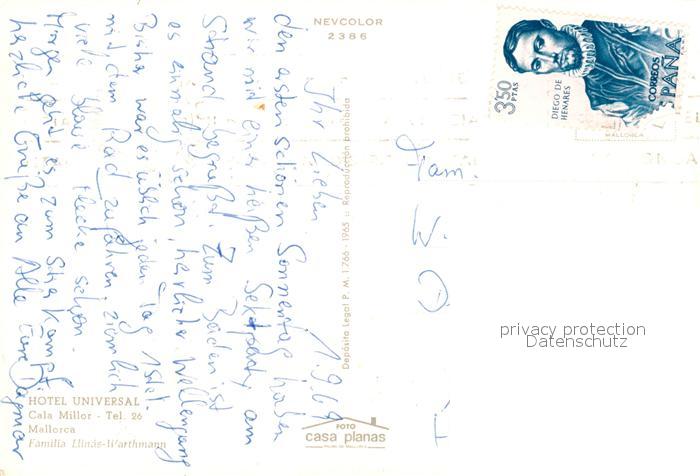 NEVCOLOR
2386
3'50 PTAS
DIEGO DE
HENARES
CORREOS
ESPAÑA
MALLORCA
1.9.69
Ihr Lieben
den ersten schönen Sonnentag haben
wir mit einer heißen Sektparty am
Strand begrüßt. Zum Baden ist
es einmalig schön, herrlicher Wellengang
Bisher war es üblich jeden Tag 1 Std.
mit dem Rad zu fahren, ziemlich
viele blaue Flecke schon.
Morgen geht es zum Stierkampf.
herzliche Grüße an Alle Eure Dagmar
Fam.
Depósito Legal P. M. 1766 - 1965 :: Reproducción prohibida
privacy protection
Datenschutz
HOTEL UNIVERSAL
Cala Millor - Tel. 26
Mallorca
Familia Llinás-Warthmann
FOTO
casa planas